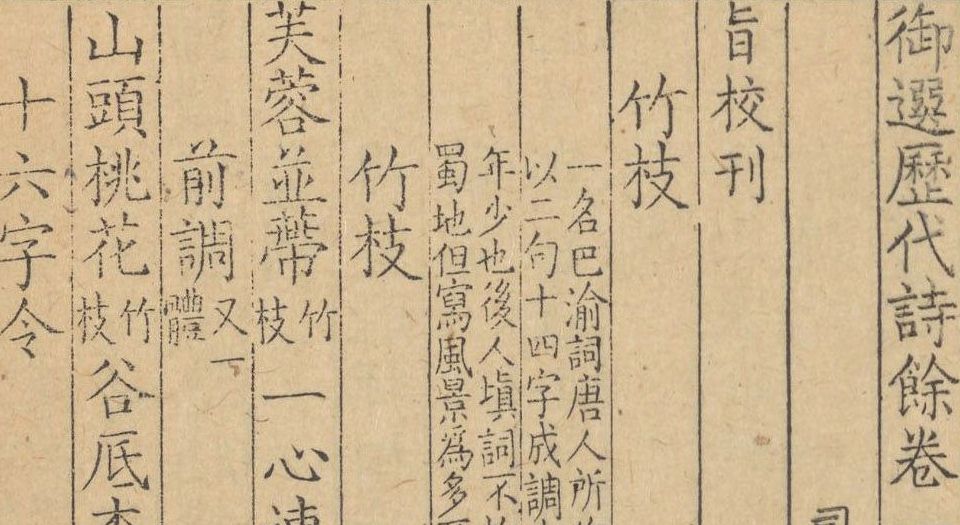 御選歷代詩餘卷
旨校刊
竹枝
一名巴渝詞唐人所
以二句十四字成調
年少也後人塡詞不
蜀地但寫風景爲多
竹枝
芙蓉並蔕竹枝一心連
前調又一體
山頭桃花竹枝谷底
十六字令